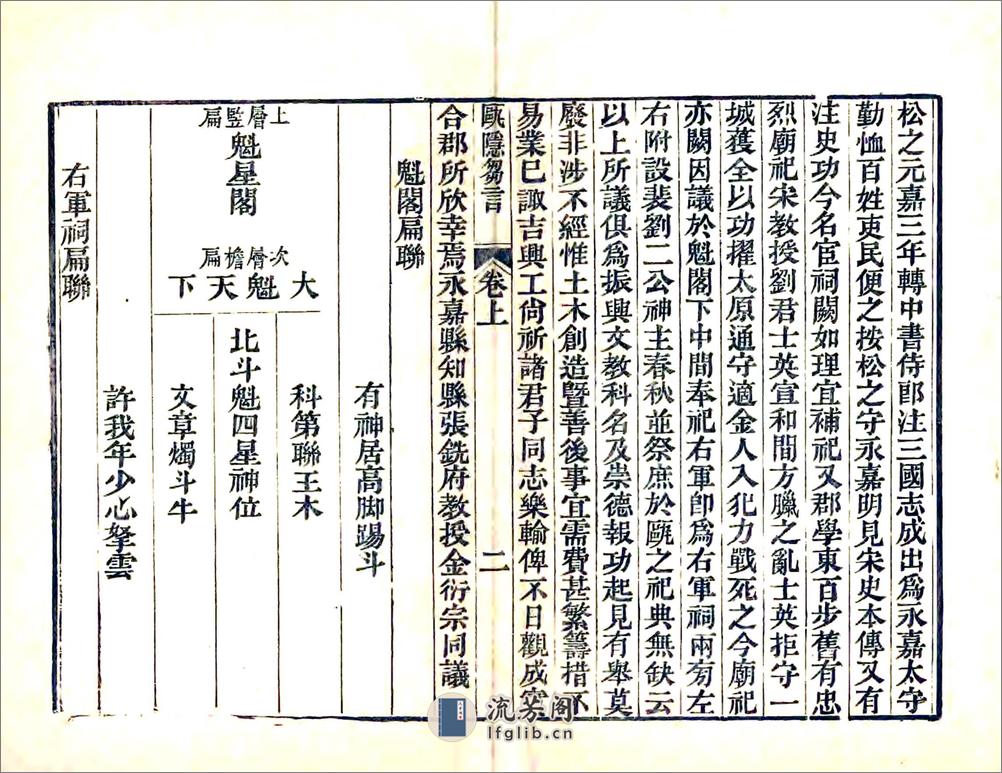 松之元嘉三年轉中書侍郎注三國志成出爲永嘉太守
勤恤百姓吏民便之按松之守永嘉明見宋史本傳又有
注史功今名宦祠闕如理宜補祀又郡學東百步舊有忠
烈廟祀宋教授劉君士英宣和間方臘之亂士英拒守一
城獲全以功擢太原通守適金人入犯力戰死之今廟祀
亦闕因議於魁閣下中間奉祀右軍卽爲右軍祠兩旁左
右附設裴劉二公神主春秋並祭庶於甌之祀典無缺云
以上所議俱爲振興文教科名及崇德報功起見有舉莫
廢非涉不經惟土木創造暨善後事宜需費甚繁籌措不
易業已諏吉興工尙祈諸君子同志樂輸俾不日觀成寔
甌隱芻言
卷上
二
合郡所欣幸焉永嘉縣知縣張銑府教授金衍宗同議
魁閣扁聯
有神居高脚踢斗
大魁天下
科第聯王木
上層豎扁
魁星閣
次層檐扁
北斗魁四星神位
文章燭斗牛
許我年少心拏雲
右軍祠扁聯
流芳阁
lfglib.cn